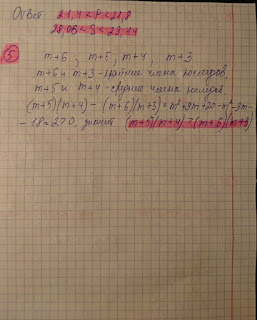 Ответ: 21,4 < P < 21,8
28,06 < S < 29,44
⑤ m+6, m+5, m+4, m+3
m+6 и m+3 - крайние члена размеров,
m+5 и m+4 - средние члена размеров.
(m+5)(m+4) - (m+6)(m+3) = m²+9m+20-m²-9m-
-18=2>0, значит (m+5)(m+4) > (m+6)(m+3)